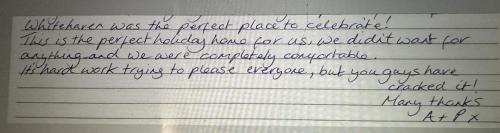 Whitehaven was the perfect place to celebrate!
This is the perfect holiday home for us, we didn't want for
anything and we were completely comfortable.
It's hard work trying to please everyone, but you guys have
cracked it!
Many thanks
A + P x